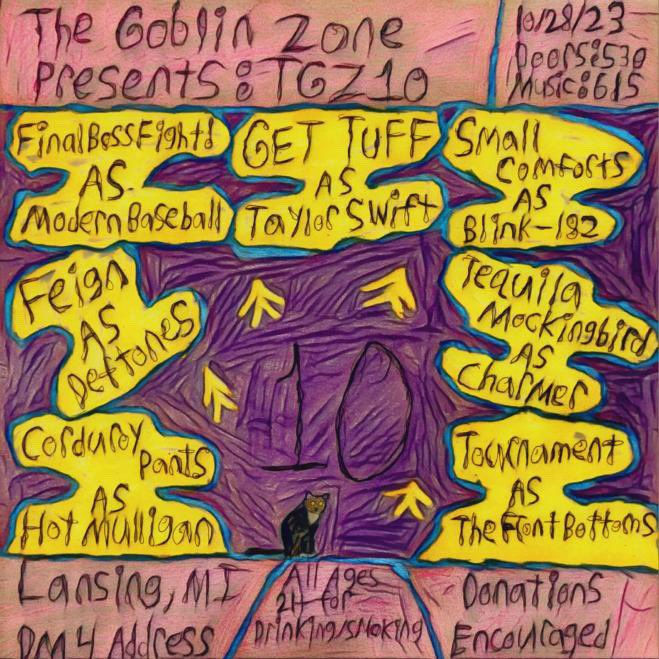 The Goblin Zone
Presents: TGZ10
10/28/23
Doors:530
Music:615
FinalBossFight!
AS
Modern Baseball
GET TUFF
AS
Taylor Swift
Small
Comforts
AS
Blink-182
Feign
AS
Deftones
Tequila
Mockingbird
AS
Charmer
10
Corduroy
Pants
AS
Hot Mulligan
Tournament
AS
The Front Bottoms
Lansing, MI
DM 4 Address
All Ages
21+ for
Drinking/smoking
Donations
Encouraged